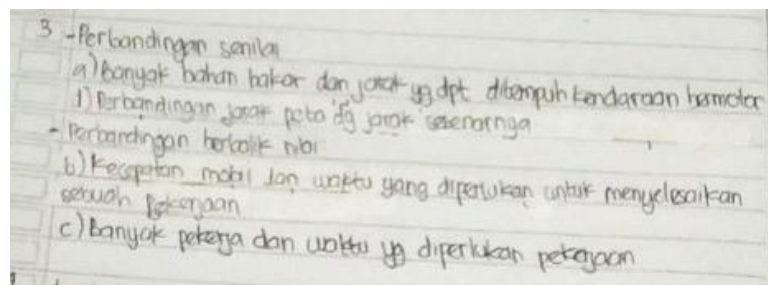 3 - Perbandingan senilai
a) Banyak bahan bakar dan jarak yg dpt ditempuh kendaraan bermotor
d) Perbandingan jarak peta dg jarak sebenarnya
- Perbandingan berbalik nilai
b) Kecepatan mobil dan waktu yang diperlukan untuk menyelesaikan
sebuah pekerjaan
c) Banyak pekerja dan waktu yg diperlukan pekerjaan